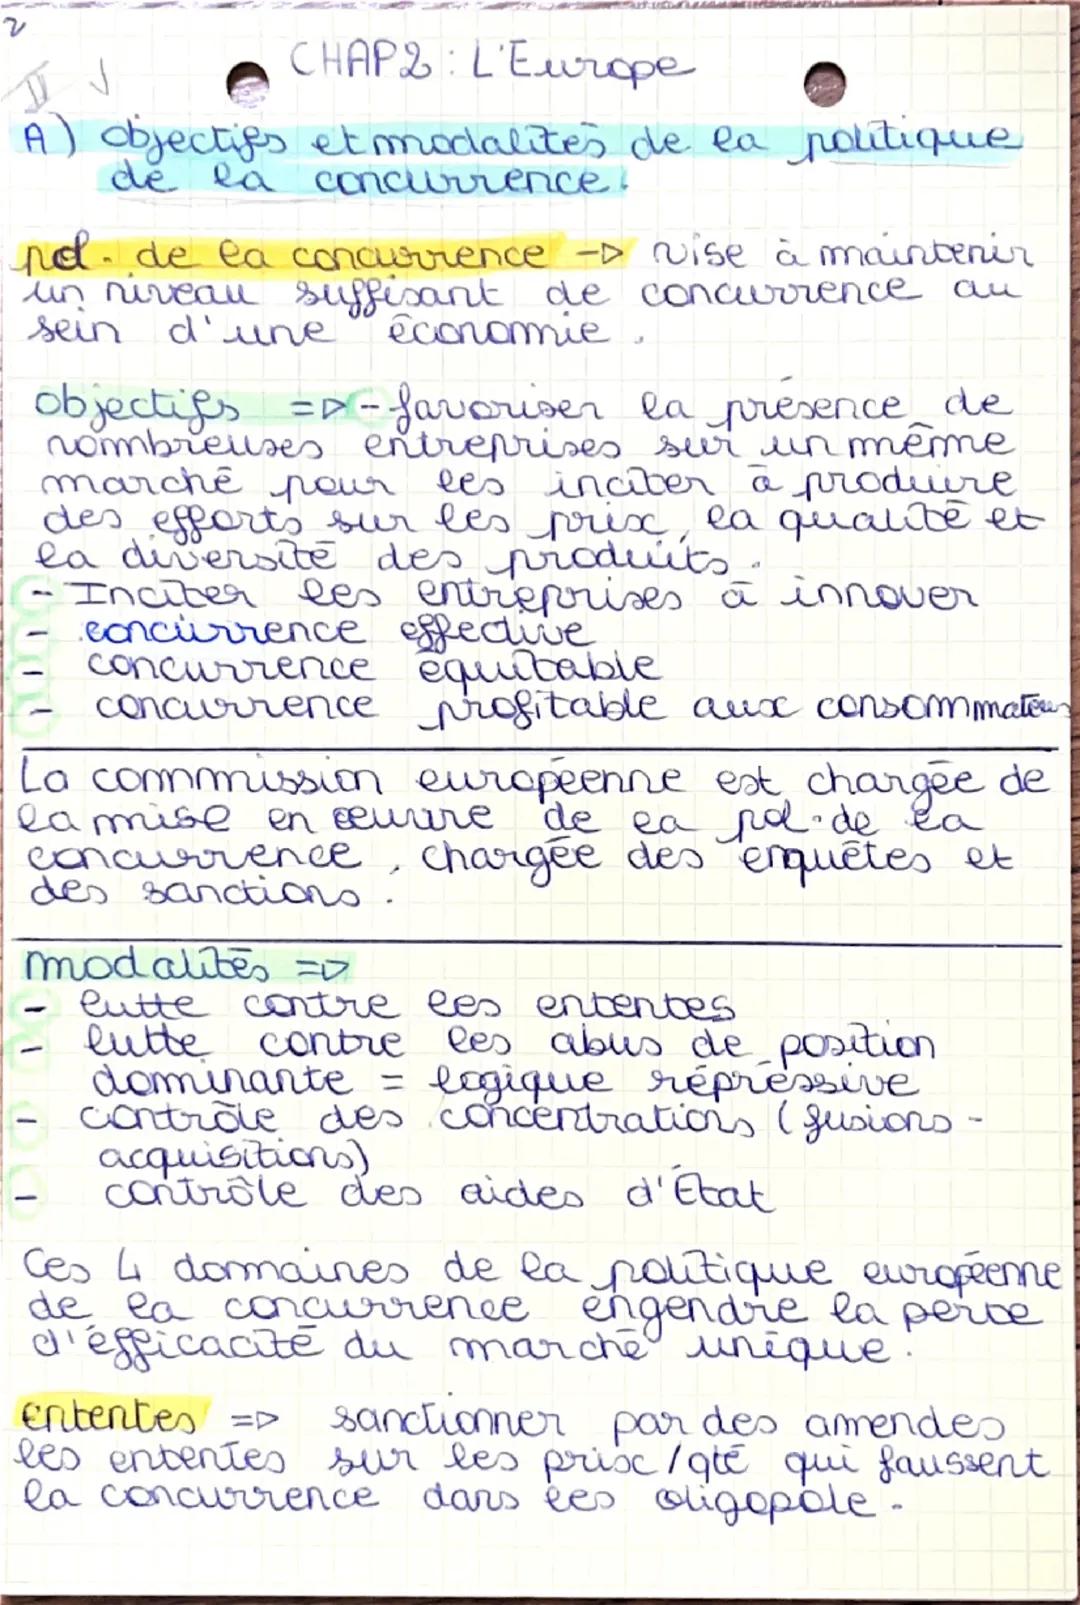 2
II
CHAP2 : L'Europe
A) objectifs et modalités de la politique
de la concurrence.
pol. de la concurrence -> vise à maintenir
un niveau suffisant de concurrence au
sein d'une économie.
objectifs => - favoriser la présence de
nombreuses entreprises sur un même
marché pour les inciter à produire
des efforts sur les prix, la qualité et
la diversité des produits.
- Inciter les entreprises à innover
- concurrence effective
- concurrence équitable
- concurrence profitable aux consommateurs
La commmission européenne est chargée de
la mise en œuvre de la pol. de la
concurrence, chargée des enquêtes et
des sanctions.
modalités =>
- lutte contre les ententes
- lutte contre les abus de position
dominante = logique répressive
- contrôle des concentrations (fusions -
acquisitions)
- contrôle des aides d'État
Ces 4 domaines de la politique européenne
de la concurrence engendre la perte
d'efficacité du marché unique.
ententes => sanctionner par des amendes
les ententes sur les prix/qté qui faussent
la concurrence dans les oligopole.